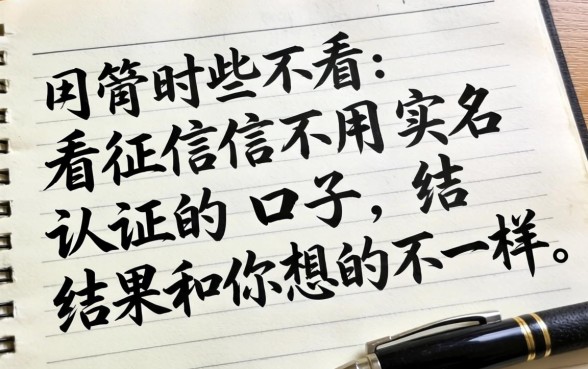 用筒时些不看：
看征信信不用实名
认证的 口子，结
结果和你想的不一样。